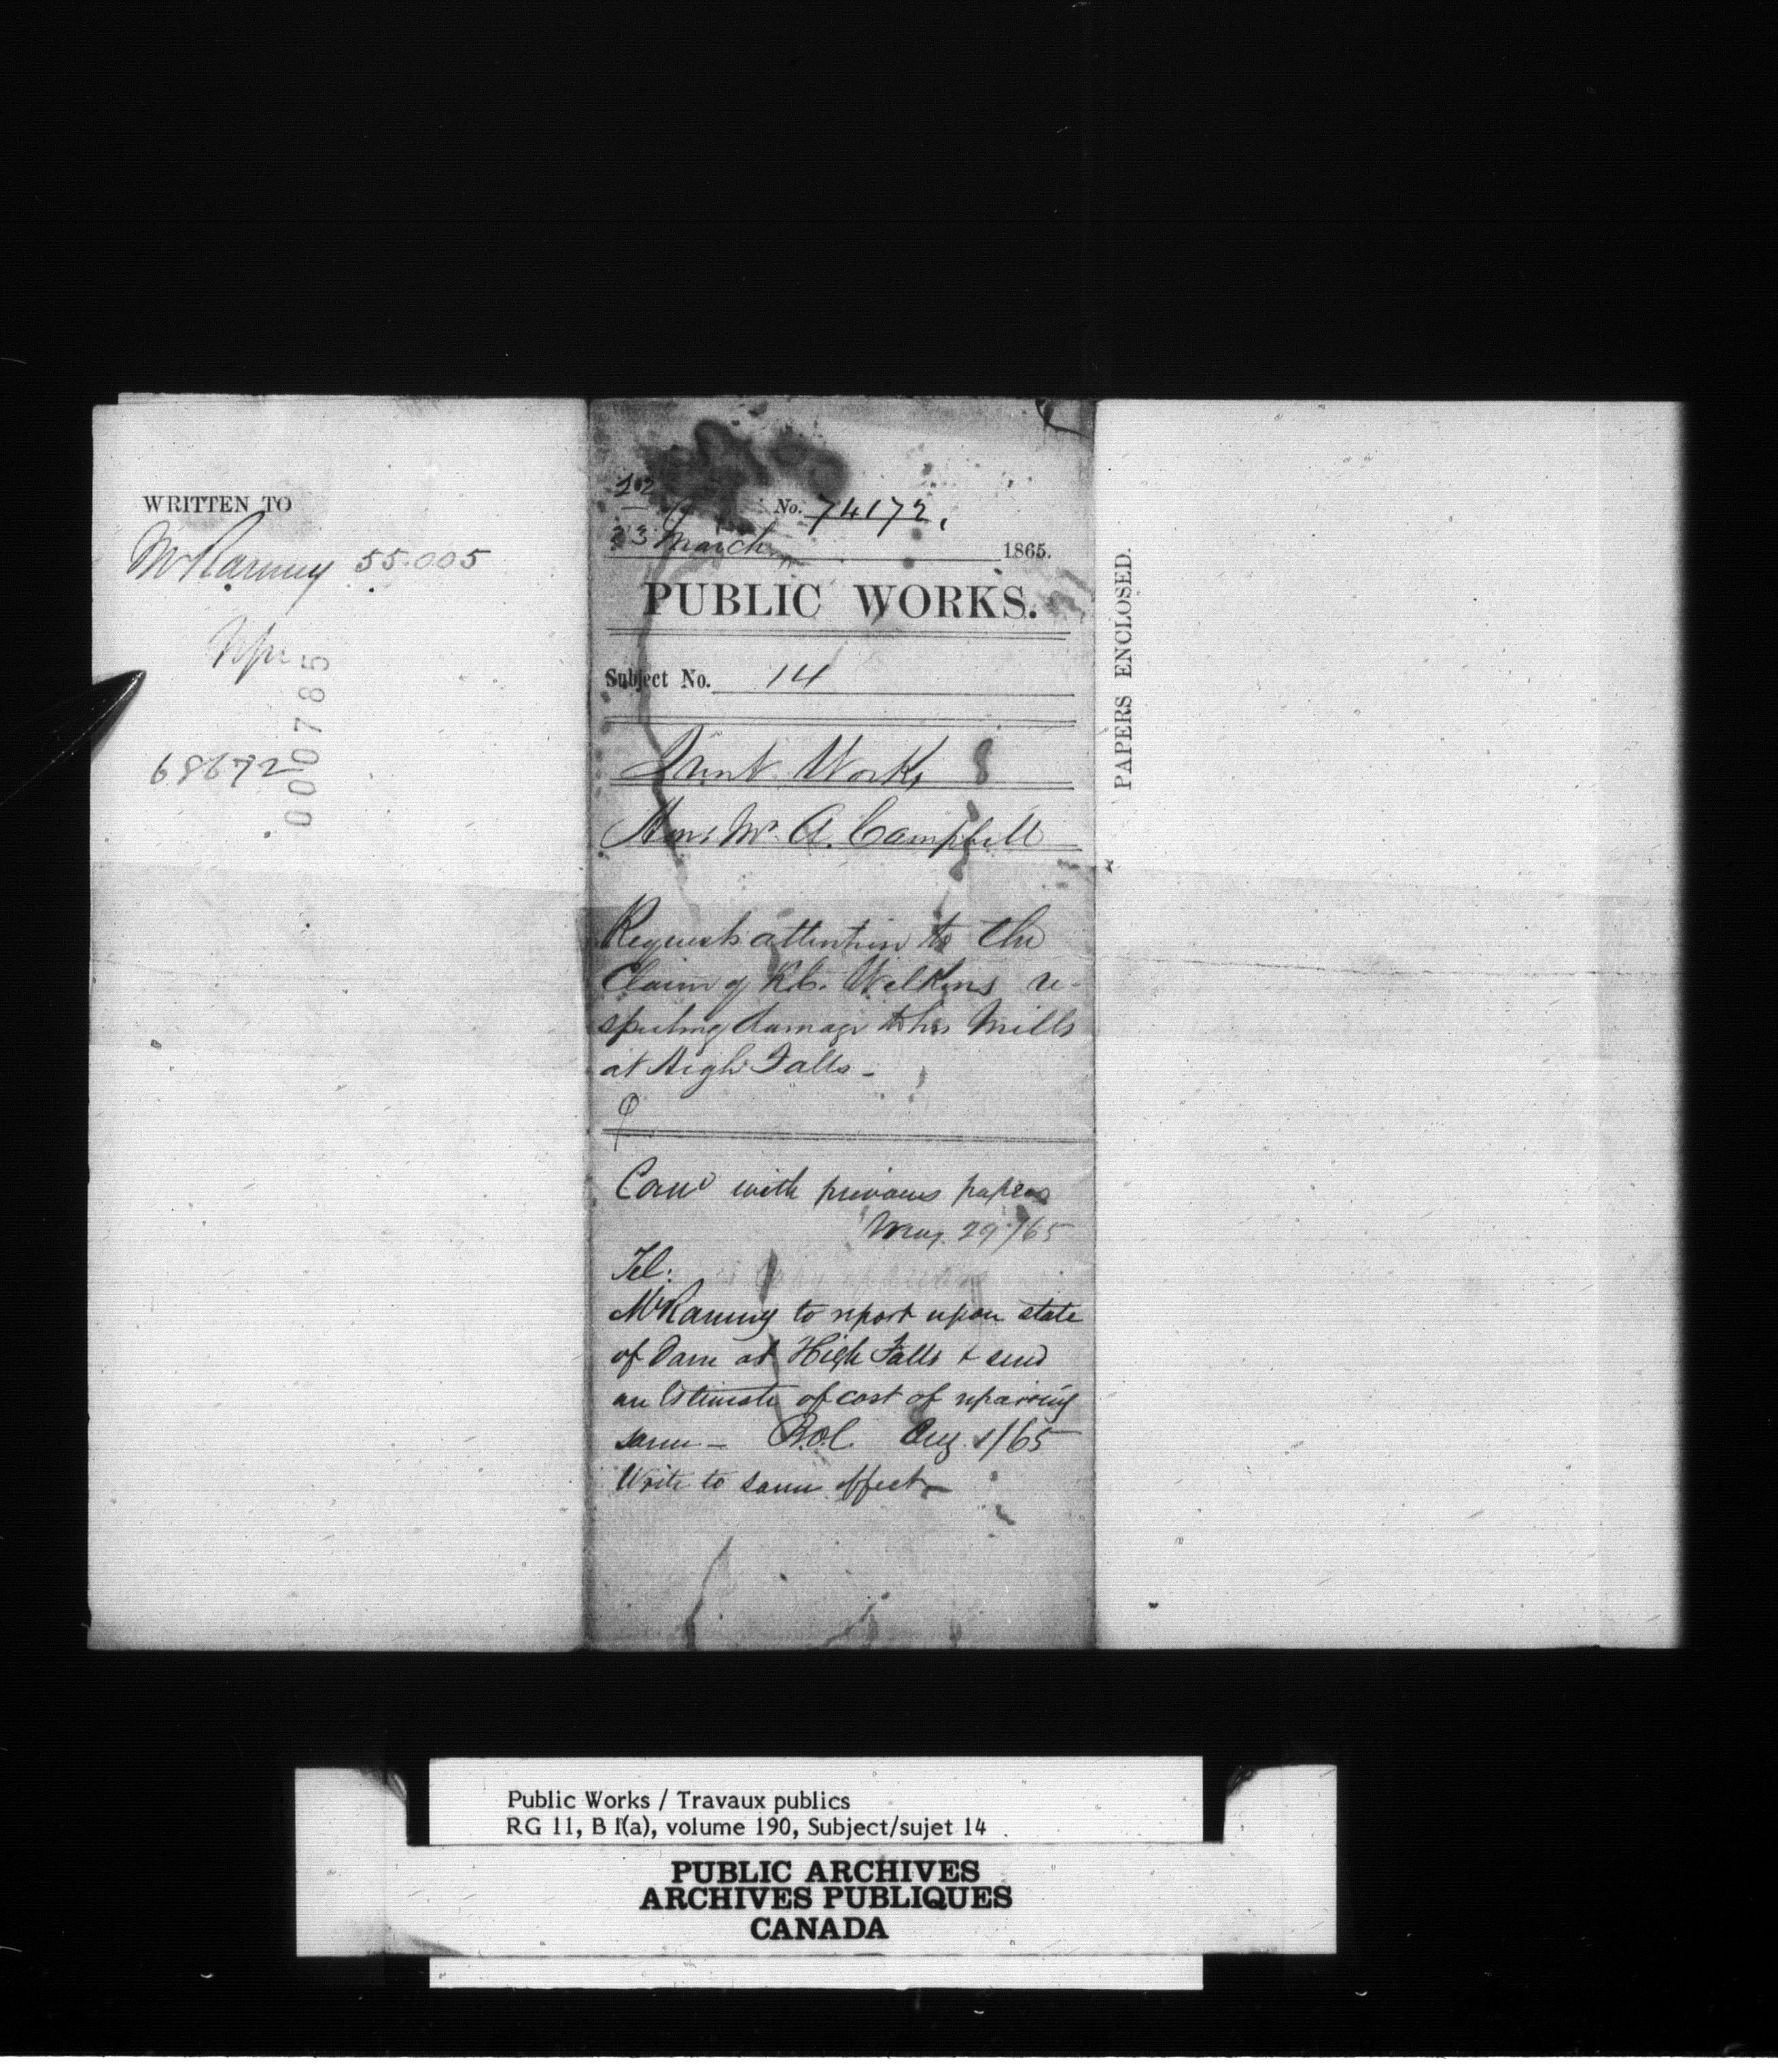 WRITTEN TO
McRanney 55.005
000785
68672
22
23 March 1865.
No. 74172.
PUBLIC WORKS.
Subject No. 14
Trent Works 8
Hon: Mr. A. Campbell
Requests attention to the
Claim of R.C. Wilkins re-
specting damage to his Mills
at High Falls -
with previous papers
29/65
Tel:
McRanney to report upon state
of Dam at High Falls & send
an Estimate of cost of repairing
same - Aug 1/65
Write to same effect -
PAPERS ENCLOSED.
Public Works / Travaux publics
RG 11, B 1(a), volume 190, Subject/sujet 14
PUBLIC ARCHIVES
ARCHIVES PUBLIQUES
CANADA